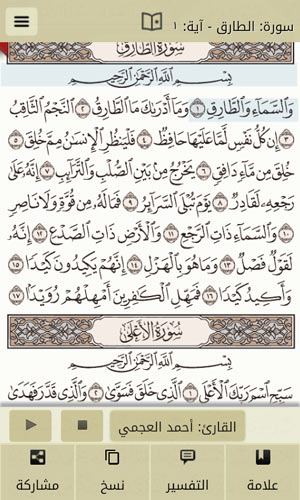 سورة: الطارق - آية: ١
سُورَةُ الطَّارِقِ
بِسْمِ اللَّهِ الرَّحْمَٰنِ الرَّحِيمِ
وَالسَّمَاءِ وَالطَّارِقِ ١ وَمَا أَدْرَىٰكَ مَا الطَّارِقُ ٢ النَّجْمُ الثَّاقِبُ
٣ إِن كُلُّ نَفْسٍ لَّمَّا عَلَيْهَا حَافِظٌ ٤ فَلْيَنظُرِ الْإِنسَٰنُ مِمَّ خُلِقَ ٥
خُلِقَ مِن مَّاءٍ دَافِقٍ ٦ يَخْرُجُ مِن بَيْنِ الصُّلْبِ وَالتَّرَائِبِ ٧ إِنَّهُ عَلَىٰ
رَجْعِهِ لَقَادِرٌ ٨ يَوْمَ تُبْلَى السَّرَائِرُ ٩ فَمَا لَهُ مِن قُوَّةٍ وَلَا نَاصِرٍ
١٠ وَالسَّمَاءِ ذَاتِ الرَّجْعِ ١١ وَالْأَرْضِ ذَاتِ الصَّدْعِ ١٢ إِنَّهُ
لَقَوْلٌ فَصْلٌ ١٣ وَمَا هُوَ بِالْهَزْلِ ١٤ إِنَّهُمْ يَكِيدُونَ كَيْدًا ١٥
وَأَكِيدُ كَيْدًا ١٦ فَمَهِّلِ الْكَٰفِرِينَ أَمْهِلْهُمْ رُوَيْدًا ١٧
سُورَةُ الْأَعْلَىٰ
بِسْمِ اللَّهِ الرَّحْمَٰنِ الرَّحِيمِ
سَبِّحِ اسْمَ رَبِّكَ الْأَعْلَى ١ الَّذِي خَلَقَ فَسَوَّىٰ ٢ وَالَّذِي قَدَّرَ فَهَدَىٰ
القارئ: أحمد العجمي
علامة
التفسير
نسخ
مشاركة